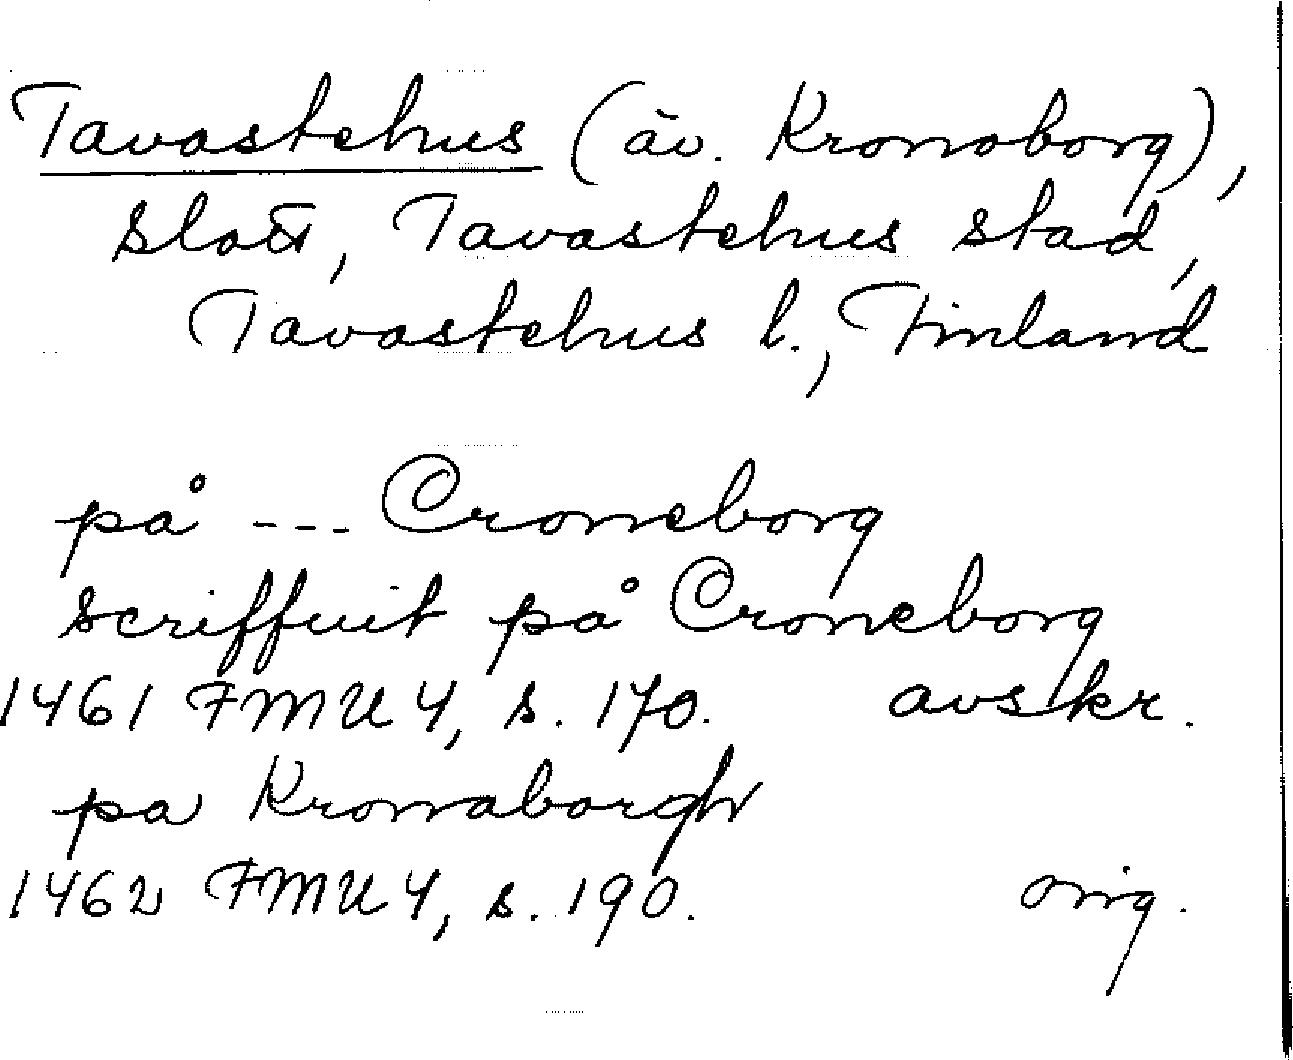 Tavastehus (äv. Kronoborg),
slott, Tavastehus stad,
Tavastehus l., Finland
på --- Croneborg
scriffuit på Croneborg
1461 FMU 4, s. 170. avskr.
pa Kronaborgh
1462 FMU 4, s. 190. orig.